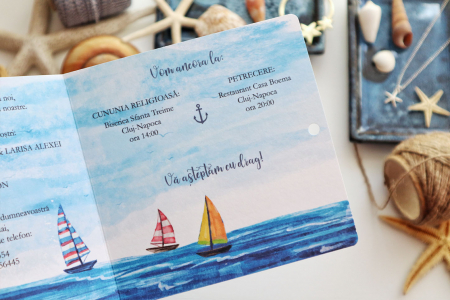 noi,
nostre:
& LARISA ALEXEI
ON
dumneavoastra
telefon:
54
3455
Vom ancora la:
CUNUNIA RELIGIOASĂ:
Biserica Sfanta Treime
Cluj-Napoca
ora 14:00
PETRECERE:
Restaurant Casa Boema
Cluj-Napoca
ora 20:00
Vă așteptăm cu drag!